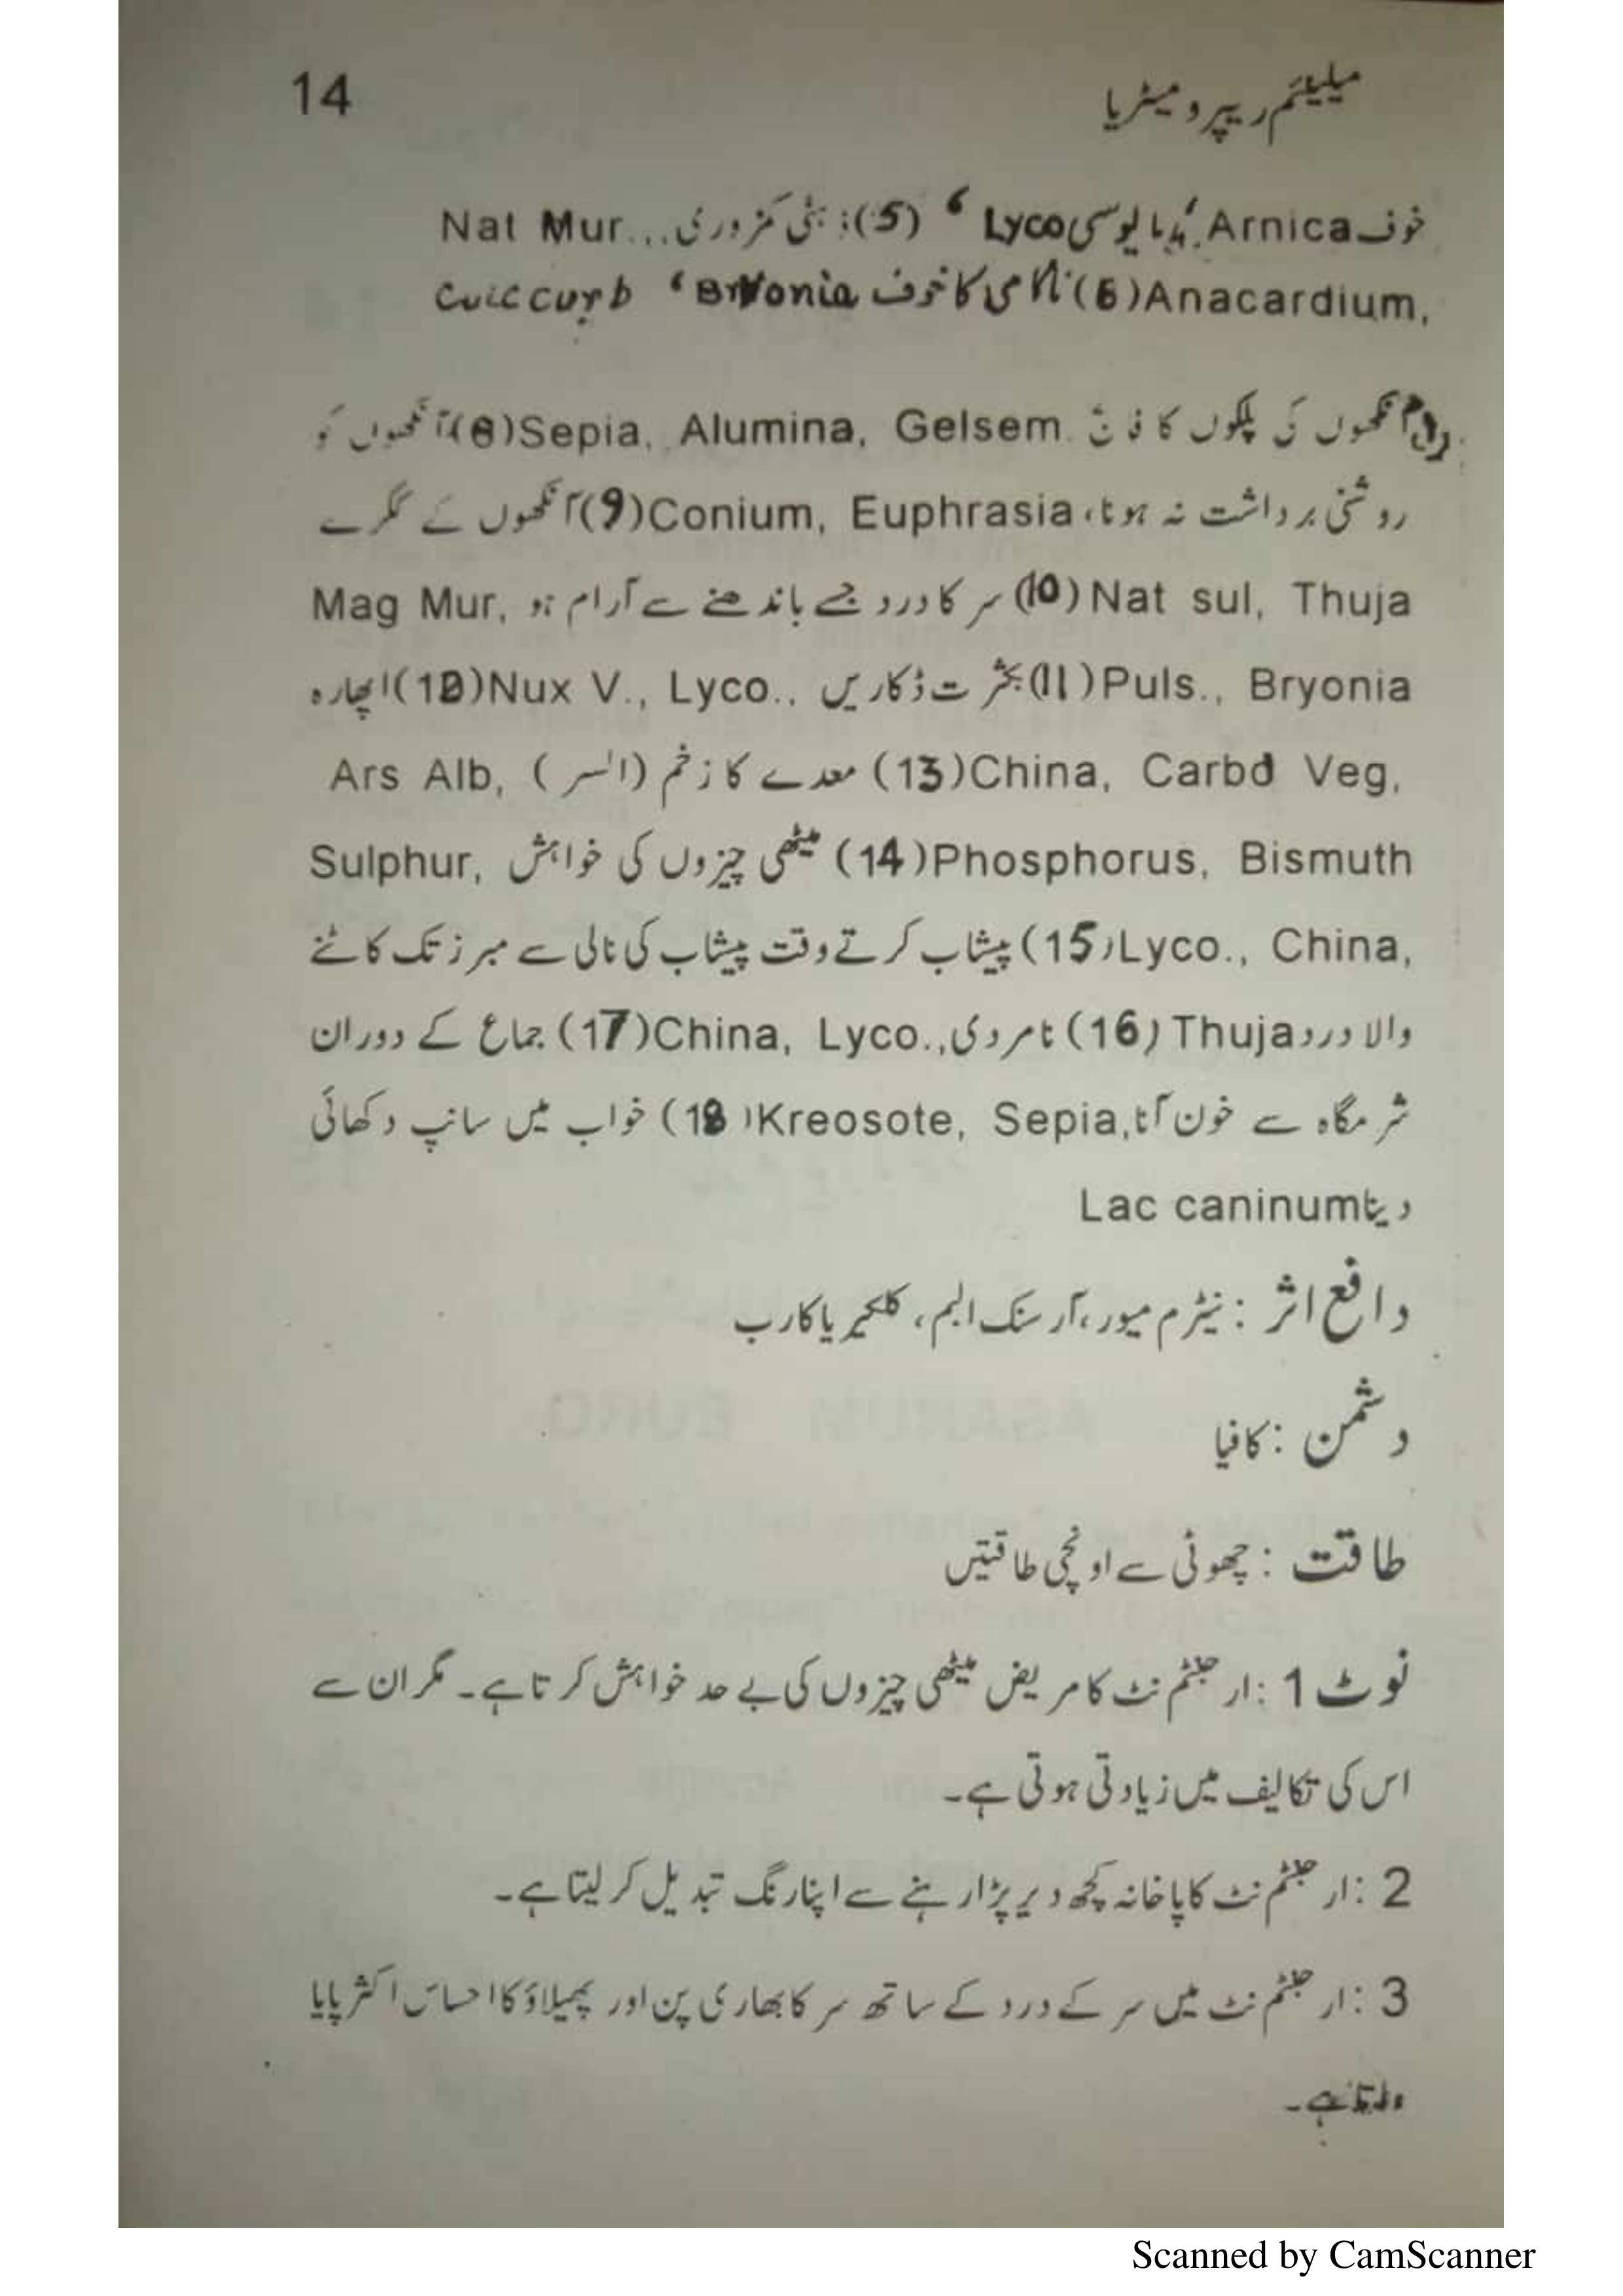 14
میلینئم ریپرو میٹریا
خوف Arnica، مایوسی Lyco ‘ (5) ذہنی کمزوری...Nat Mur
Anacardium, (6) ناکامی کا خوف Bryonia ‘
آنکھوں کی پلکوں کا فالج Sepia, Alumina, Gelsem. (8) آنکھوں کو
روشنی برداشت نہ ہونا، Conium, Euphrasia (9) آنکھوں کے ککرے
Nat sul, Thuja (10) سر کا درد جسے باندھنے سے آرام ہو Mag Mur,
Puls., Bryonia (11) بکثرت ڈکاریں Nux V., Lyco., (12) اپھارہ
China, Carbd Veg, (13) معدے کا زخم (السر) Ars Alb,
Phosphorus, Bismuth (14) میٹھی چیزوں کی خواہش Sulphur,
Lyco., China, (15) پیشاب کرتے وقت پیشاب کی نالی سے مبرز تک کاٹنے
والا درد Thuja (16) نامردی China, Lyco., (17) جماع کے دوران
شرمگاہ سے خون آنا Kreosote, Sepia, (18) خواب میں سانپ دکھائی
دینا Lac caninum
دافع اثر : نیٹرم میور، آرسنک البم، کلکیریا کارب
دشمن : کافیا
طاقت : چھوٹی سے اونچی طاقتیں
نوٹ 1 : ارجنٹم نٹ کا مریض میٹھی چیزوں کی بے حد خواہش کرتا ہے۔ مگر ان سے
اس کی تکالیف میں زیادتی ہوتی ہے۔
2 : ارجنٹم نٹ کا پاخانہ کچھ دیر پڑا رہنے سے اپنا رنگ تبدیل کر لیتا ہے۔
3 : ارجنٹم نٹ میں سر کے درد کے ساتھ سر کا بھاری پن اور پھیلاؤ کا احساس اکثر پایا
جاتا ہے۔
Scanned by CamScanner